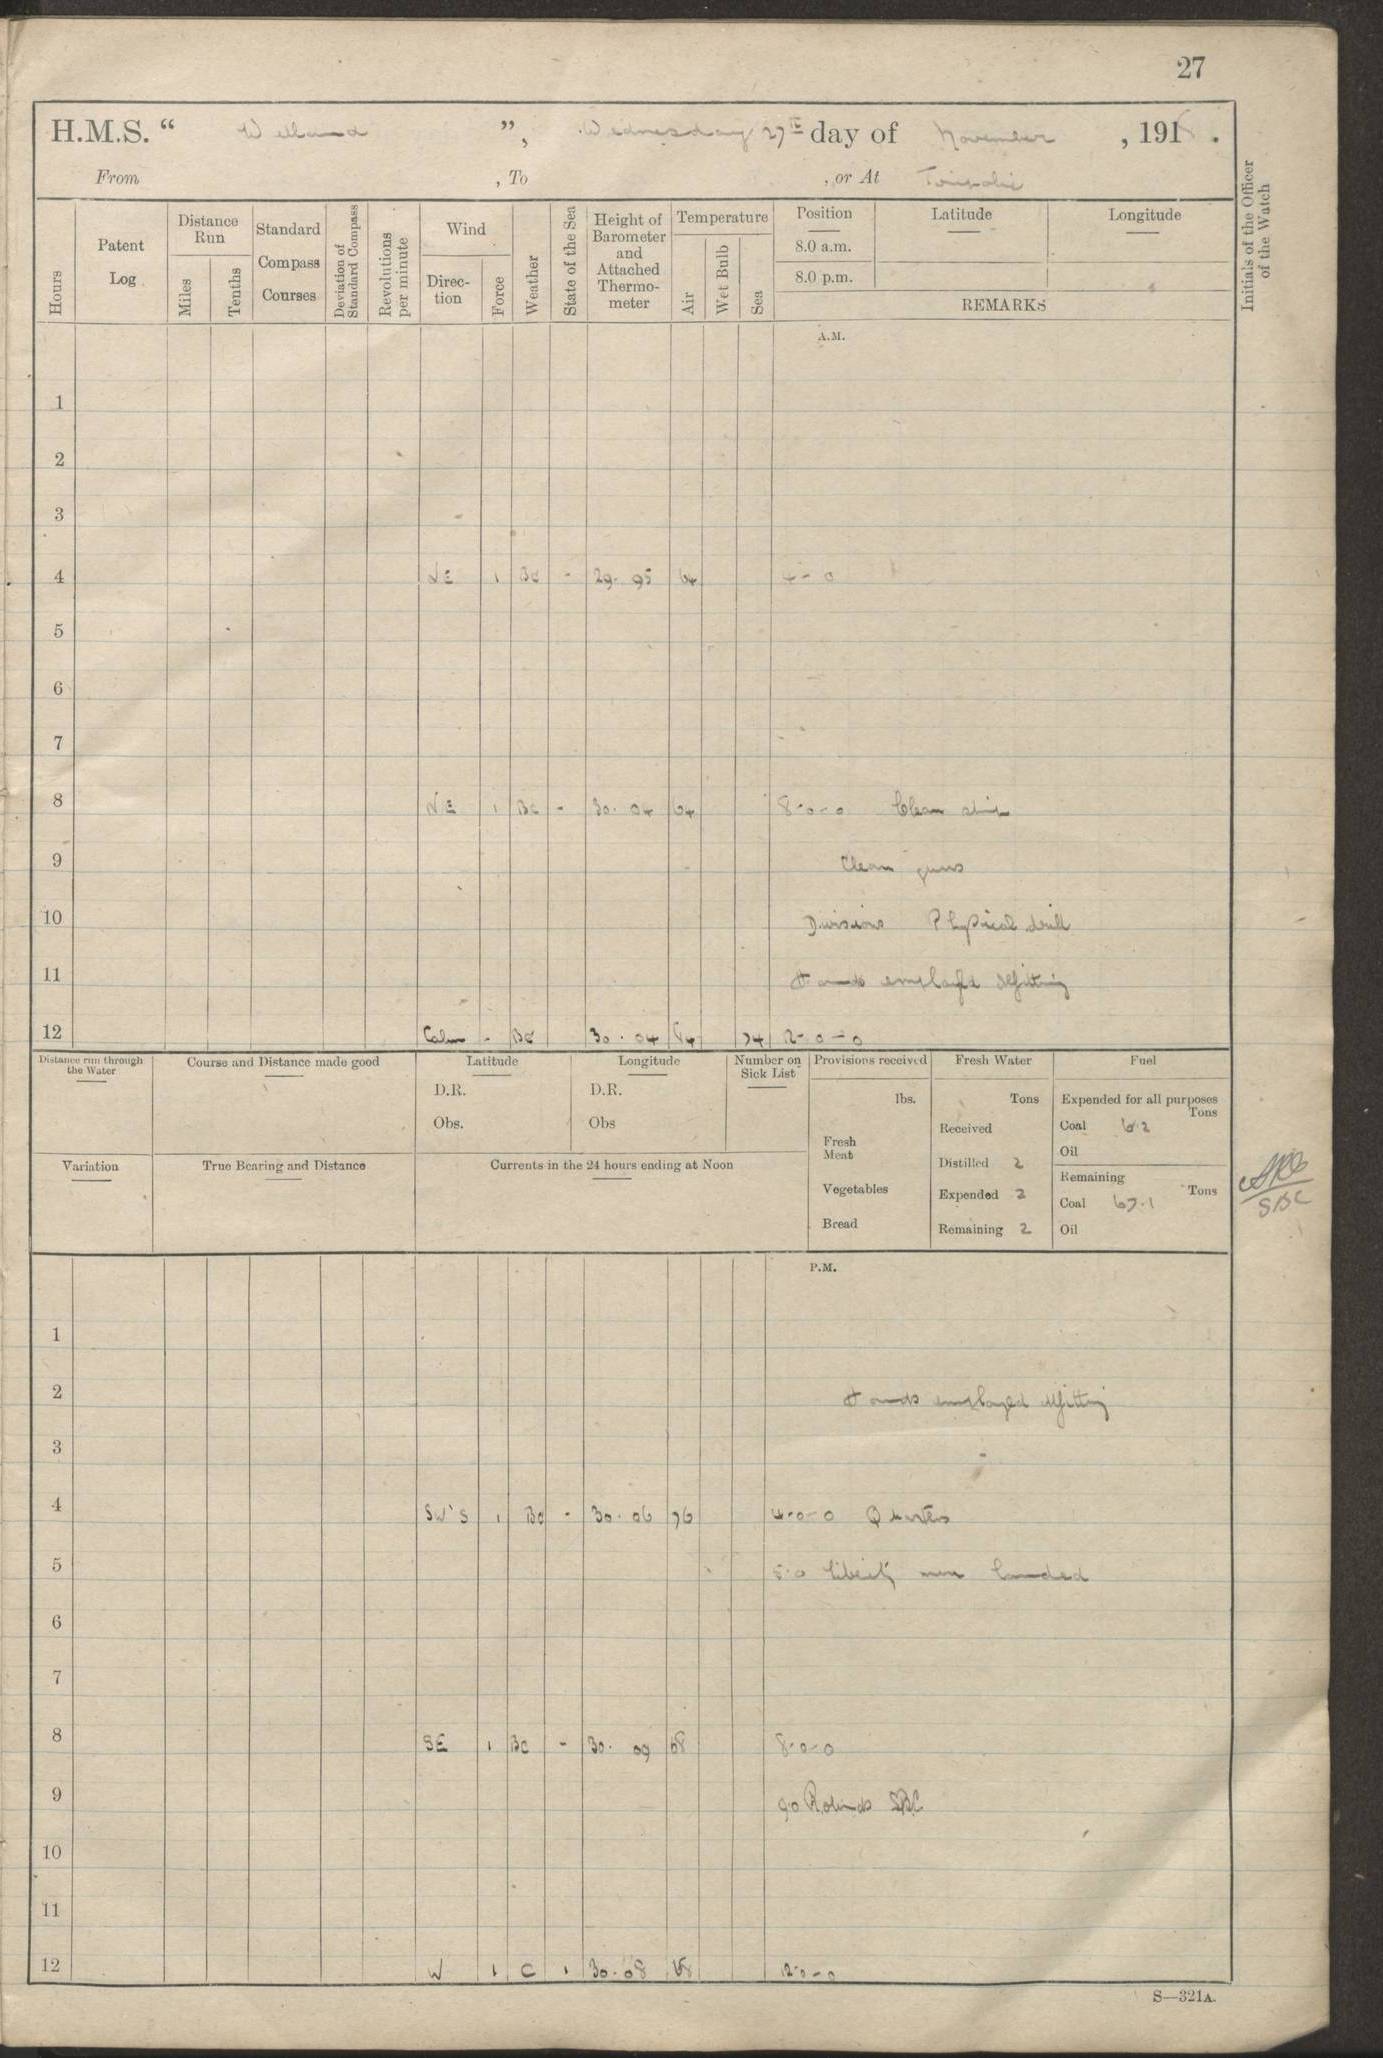 27
H.M.S. “ Welland ”, Wednesday 27th day of November , 1918 .
From , To , or At
Hours
Patent Log
Distance Run
Miles
Tenths
Standard Compass Courses
Deviation of Standard Compass
Revolutions per minute
Wind
Direction
Force
Weather
State of the Sea
Height of Barometer and Attached Thermometer
Temperature
Air
Wet Bulb
Sea
Position
8.0 a.m.
8.0 p.m.
Latitude
Longitude
REMARKS
Initials of the Officer of the Watch
A.M.
1
2
3
4 NE 1 BC - 29.95 64 4-0
5
6
7
8 NE 1 BC - 30.04 64 8-0-0 Clean ship
9 Clean guns
10 Divisions Physical drill
11 Hands employed refitting
12 Calm - BC 30.04 74 12-0-0
Distance run through the Water
Course and Distance made good
Latitude
D.R.
Obs.
Longitude
D.R.
Obs
Number on Sick List
Provisions received
lbs.
Fresh Meat
Vegetables
Bread
Fresh Water
Tons
Received
Distilled 2
Expended 2
Remaining 2
Fuel
Expended for all purposes
Tons
Coal 6.2
Oil
Remaining
Tons
Coal 67.1
Oil
SBC
Variation
True Bearing and Distance
Currents in the 24 hours ending at Noon
P.M.
1
2 Hands employed refitting
3
4 SW'S 1 BC - 30.06 76 4-0-0 Quarters
5 5.0 Liberty men landed
6
7
8 SE 1 BC - 30.09 68 8-0-0
9 9.0 Rounds SBC
10
11
12 W 1 C 1 30.08 68 12-0-0
S—321A.